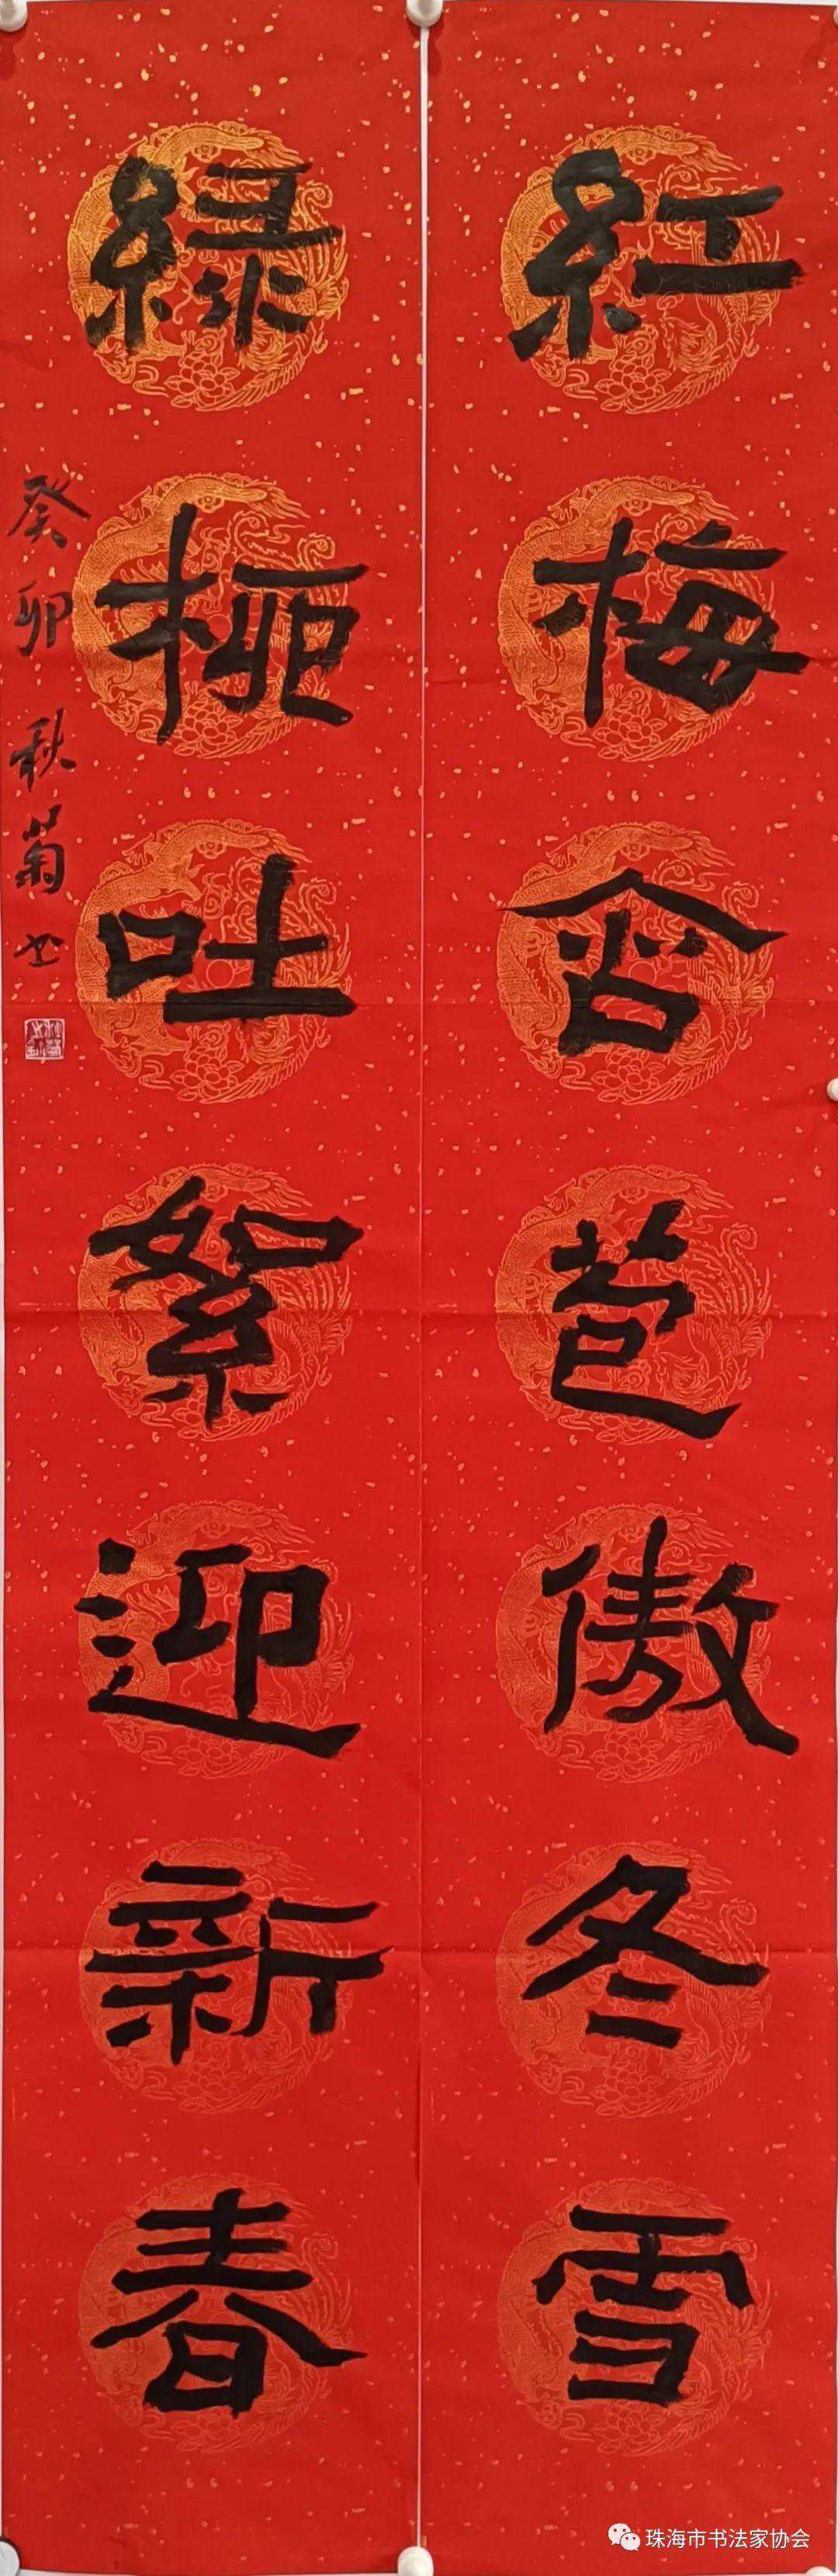 紅梅含苞傲冬雪
綠柳吐絮迎新春
癸卯秋菊书
珠海市书法家协会